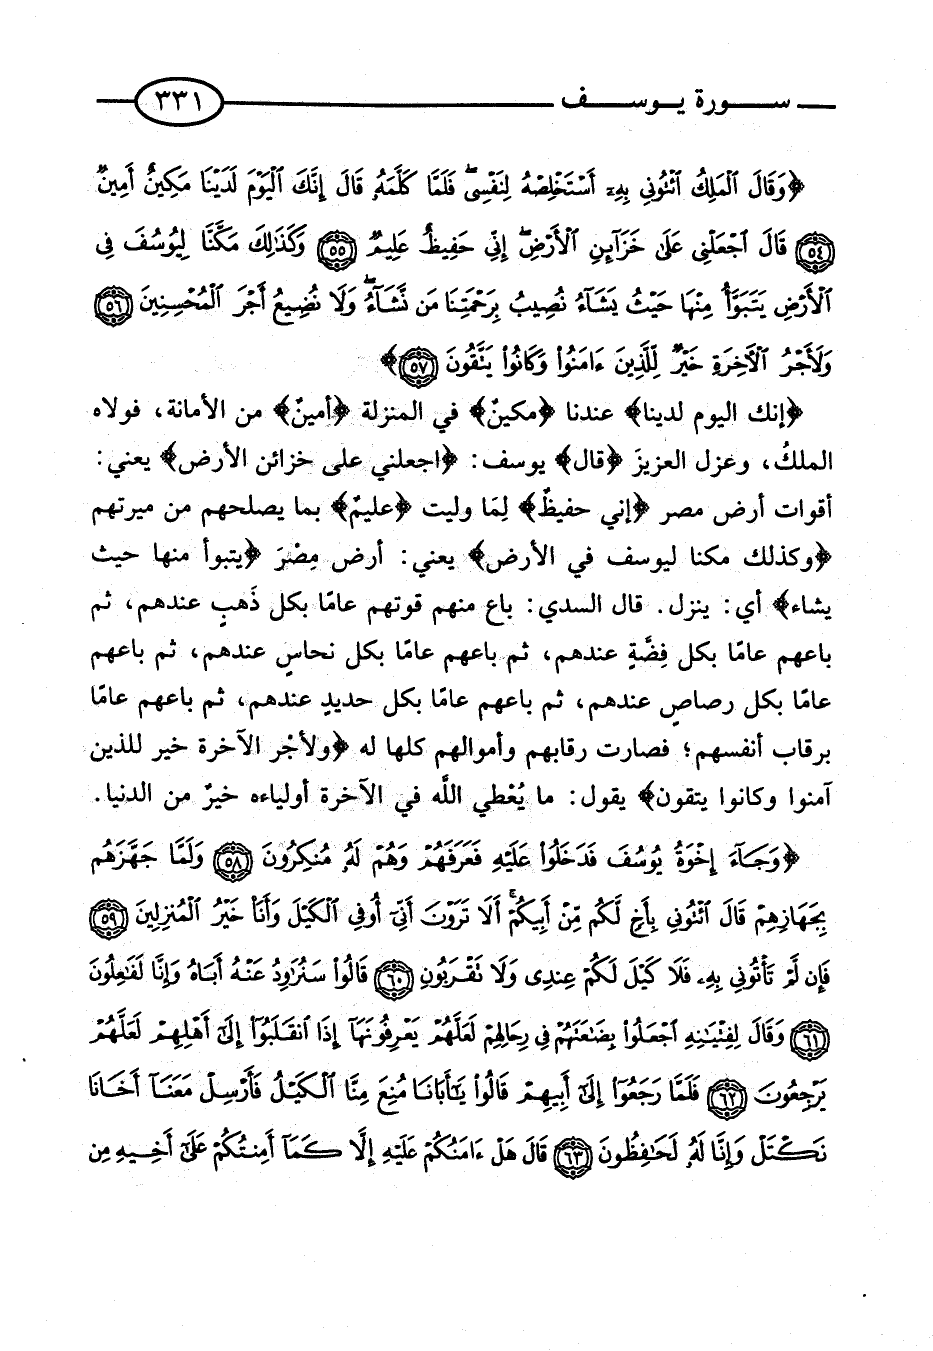 سورة يوسف ٣٣١
﴿وَقَالَ ٱلْمَلِكُ ٱئْتُونِي بِهِۦٓ أَسْتَخْلِصْهُ لِنَفْسِيۖ فَلَمَّا كَلَّمَهُۥ قَالَ إِنَّكَ ٱلْيَوْمَ لَدَيْنَا مَكِينٌ أَمِينٌ
﴿٥٤﴾ قَالَ ٱجْعَلْنِي عَلَىٰ خَزَآئِنِ ٱلْأَرْضِۖ إِنِّي حَفِيظٌ عَلِيمٌ ﴿٥٥﴾ وَكَذَٰلِكَ مَكَّنَّا لِيُوسُفَ فِي
ٱلْأَرْضِ يَتَبَوَّأُ مِنْهَا حَيْثُ يَشَآءُۚ نُصِيبُ بِرَحْمَتِنَا مَن نَّشَآءُۖ وَلَا نُضِيعُ أَجْرَ ٱلْمُحْسِنِينَ ﴿٥٦﴾
وَلَأَجْرُ ٱلْأَخِرَةِ خَيْرٌ لِّلَّذِينَ ءَامَنُوا۟ وَكَانُوا۟ يَتَّقُونَ ﴿٥٧﴾﴾
﴿إنك اليوم لدينا﴾ عندنا ﴿مكينٌ﴾ في المنزلة ﴿أمينٌ﴾ من الأمانة، فولاه
الملكُ، وعزل العزيزَ ﴿قال﴾ يوسف: ﴿اجعلني على خزائن الأرض﴾ يعني:
أقوات أرض مصر ﴿إني حفيظٌ﴾ لِمَا وليت ﴿عليمٌ﴾ بما يصلحهم من ميرتهم
﴿وكذلك مكنا ليوسف في الأرض﴾ يعني: أرض مِصْرَ ﴿يتبوأ منها حيث
يشاء﴾ أي: ينزل. قال السدي: باع منهم قوتهم عامًا بكل ذَهبٍ عندهم، ثم
باعهم عامًا بكل فِضَّةٍ عندهم، ثم باعهم عامًا بكل نحاسٍ عندهم، ثم باعهم
عامًا بكل رصاصٍ عندهم، ثم باعهم عامًا بكل حديدٍ عندهم، ثم باعهم عامًا
برقاب أنفسهم؛ فصارت رقابهم وأموالهم كلها له ﴿ولأجْر الآخرة خير للذين
آمنوا وكانوا يتقون﴾ يقول: ما يُعْطي اللَّه في الآخرة أولياءه خيرٌ من الدنيا.
﴿وَجَآءَ إِخْوَةُ يُوسُفَ فَدَخَلُوا۟ عَلَيْهِ فَعَرَفَهُمْ وَهُمْ لَهُۥ مُنكِرُونَ ﴿٥٨﴾ وَلَمَّا جَهَّزَهُم
بِجَهَازِهِمْ قَالَ ٱئْتُونِي بِأَخٍ لَّكُم مِّنْ أَبِيكُمْۚ أَلَا تَرَوْنَ أَنِّيٓ أُوفِي ٱلْكَيْلَ وَأَنَا۠ خَيْرُ ٱلْمُنزِلِينَ ﴿٥٩﴾
فَإِن لَّمْ تَأْتُونِي بِهِۦ فَلَا كَيْلَ لَكُمْ عِندِي وَلَا تَقْرَبُونِ ﴿٦٠﴾ قَالُوا۟ سَنُرَٰوِدُ عَنْهُ أَبَاهُ وَإِنَّا لَفَٰعِلُونَ
﴿٦١﴾ وَقَالَ لِفِتْيَٰنِهِ ٱجْعَلُوا۟ بِضَٰعَتَهُمْ فِي رِحَالِهِمْ لَعَلَّهُمْ يَعْرِفُونَهَآ إِذَا ٱنقَلَبُوٓا۟ إِلَىٰٓ أَهْلِهِمْ لَعَلَّهُمْ
يَرْجِعُونَ ﴿٦٢﴾ فَلَمَّا رَجَعُوٓا۟ إِلَىٰٓ أَبِيهِمْ قَالُوا۟ يَٰٓأَبَانَا مُنِعَ مِنَّا ٱلْكَيْلُ فَأَرْسِلْ مَعَنَآ أَخَانَا
نَكْتَلْ وَإِنَّا لَهُۥ لَحَٰفِظُونَ ﴿٦٣﴾ قَالَ هَلْ ءَامَنُكُمْ عَلَيْهِ إِلَّا كَمَآ أَمِنتُكُمْ عَلَىٰٓ أَخِيهِ مِن